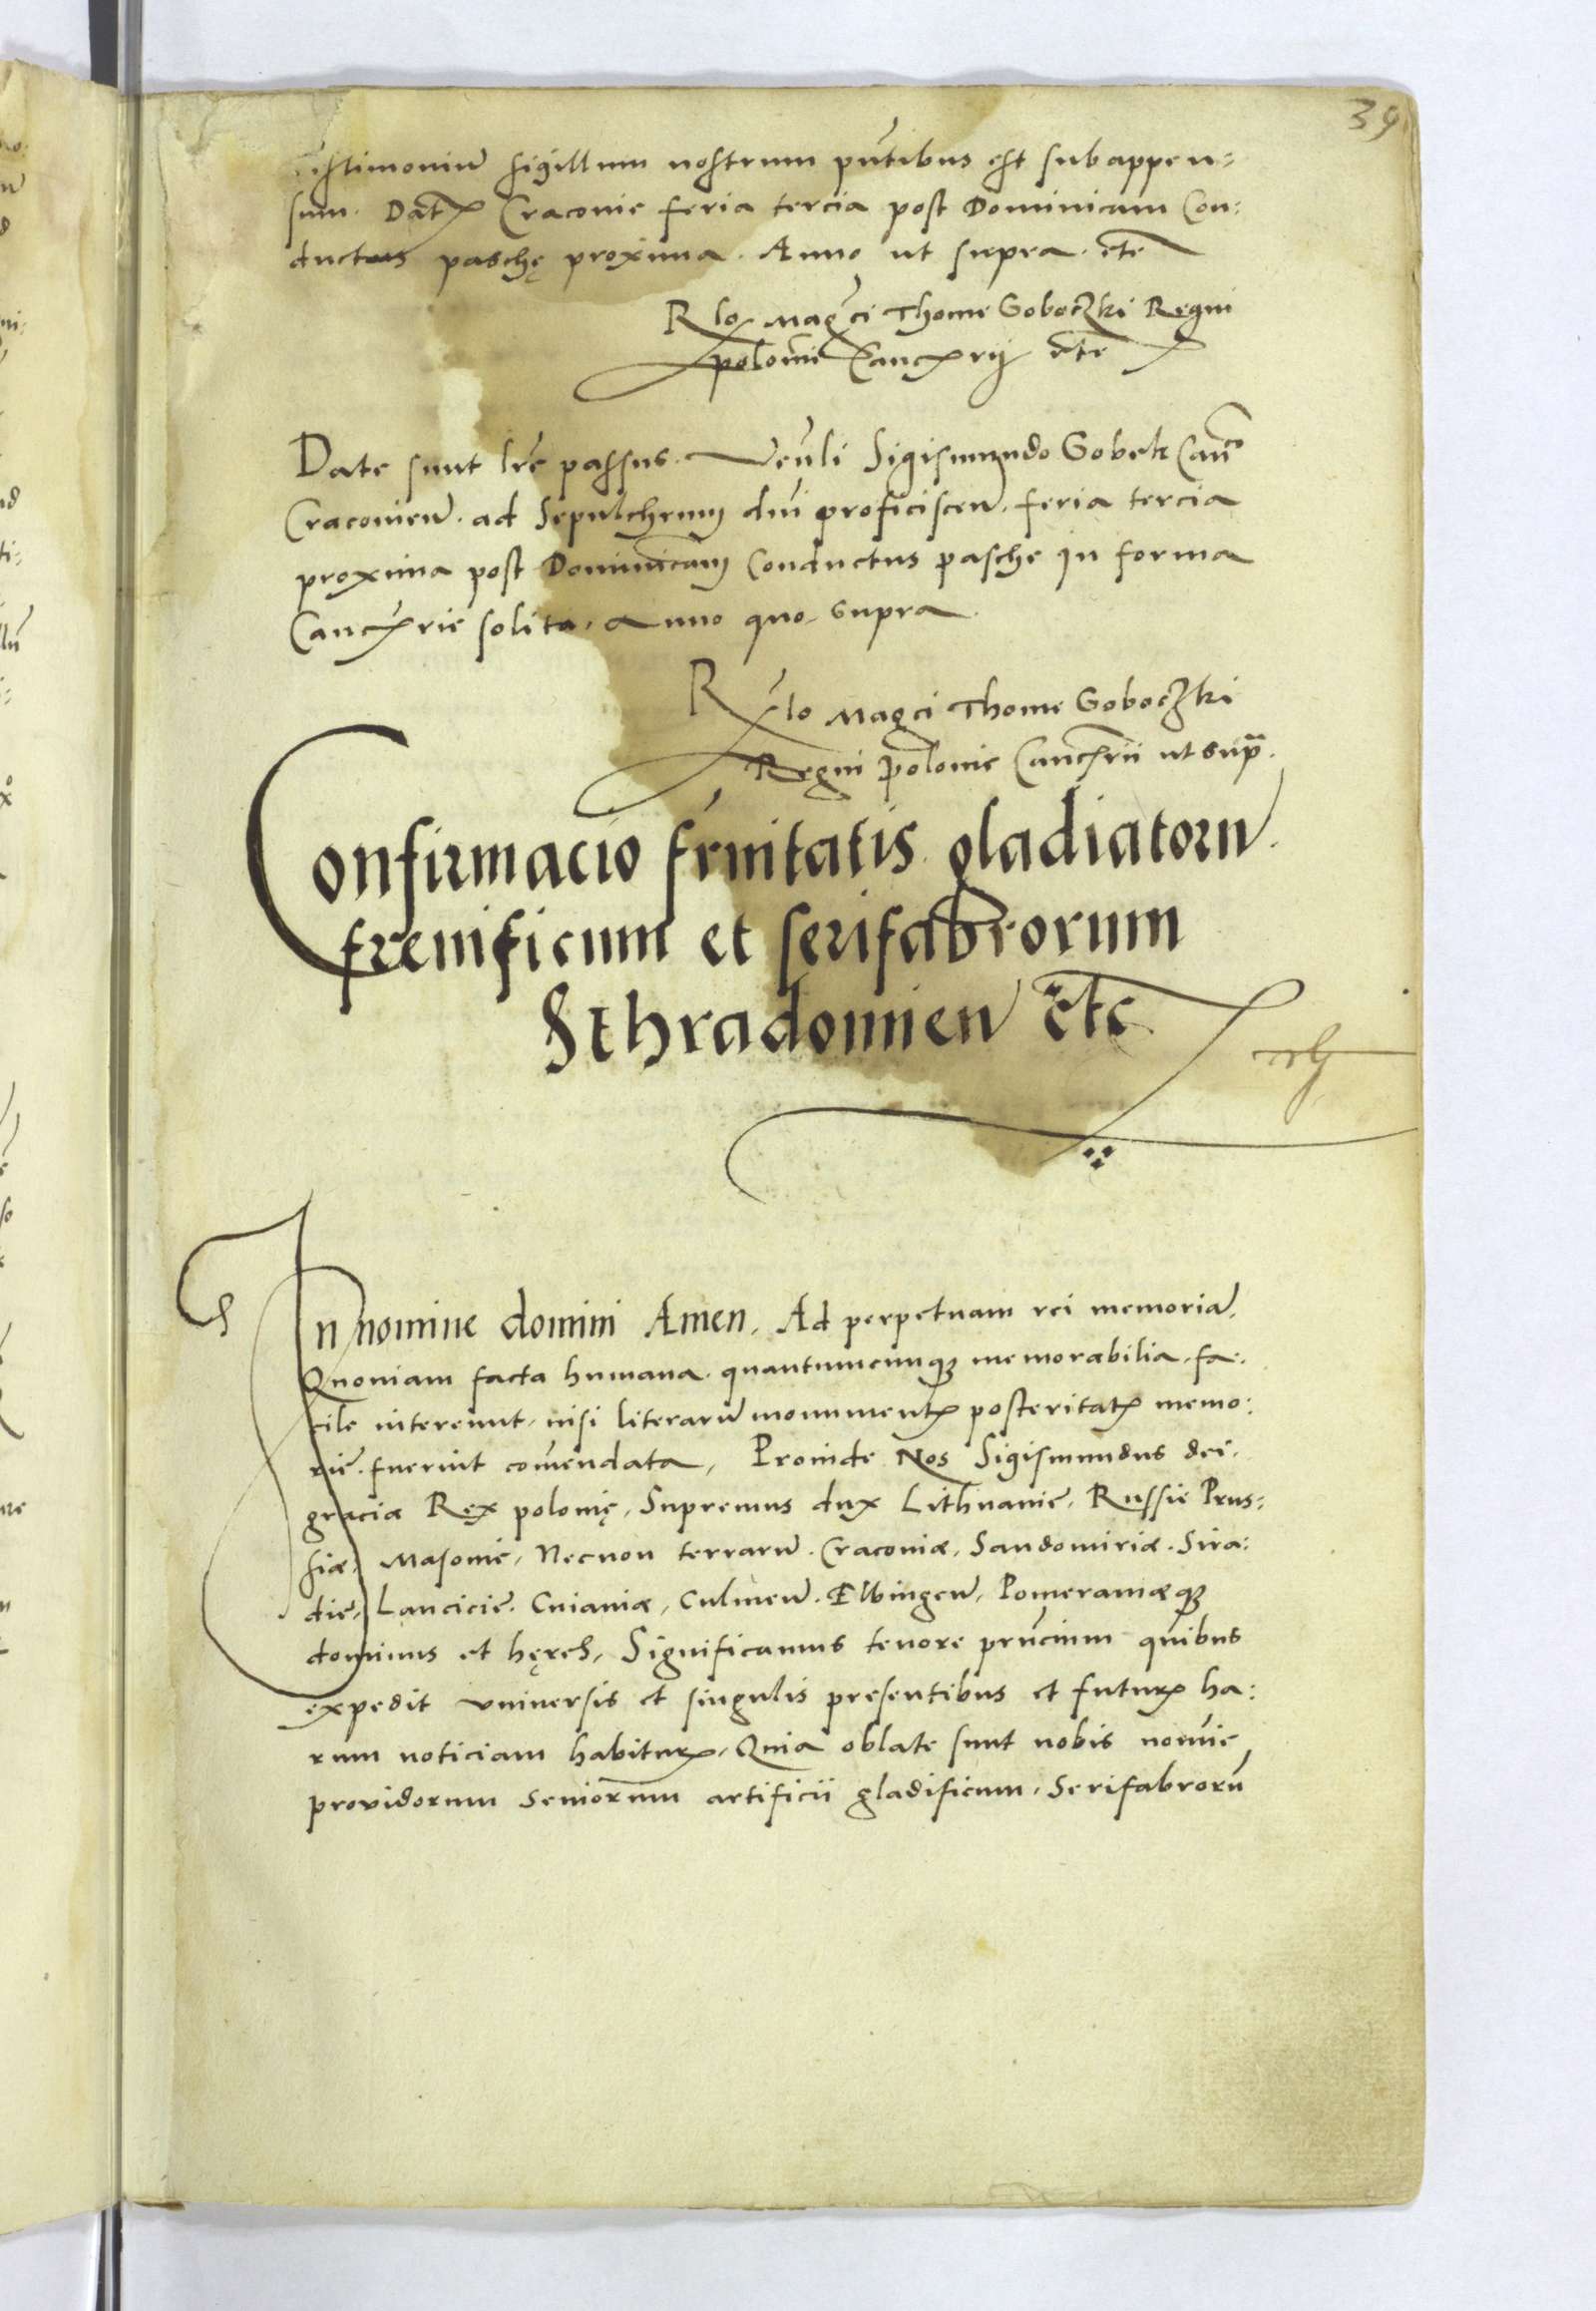 39
testimoniũ sigillum nostrum pñtibus est subappen:
sum. Datꝭ Cracovie feria tercia post Dominicam Con:
ductus paschę proxima. Anno ut supra. etc̃
Rlo Mag̃ci Thome Soboczki Regni
poloniẽ Cancꝭrij etc̃
Date sunt lrẽ passus. Veñli Sigismundo Gobek Cañco
Cracovieñ. ad Sepulchrum dñi proficisceñ. feria tercia
proxima post Dominicam Conductus pasche in forma
Cancꝭrie solita. anno quo supra.
Rlo Magci Thome Soboczki
Regni Polonie Cancꝭrii ut supra.
Confirmacio fr̃nitatis gladiatorũ.
frenificum et serifabrorum
Sthradomieñ etc̃
In nomine domini Amen. Ad perpetuam rei memoriã.
Quoniam facta humana. quantumcunqꝫ memorabilia. fa:
cile intereunt, nisi literarũ monumentꝭ posteritatꝭ memo:
rie. fuerint com̃endata, Proinde Nos Sigismundus dei.
gracia Rex polonię, Supremus dux Lithuanie, Russie Prus:
siæ, Masovie, Necnon terrarũ. Cracoviæ, Sandomiriæ. Sira:
die, Lancicie. Cuiaviæ, Culmeñ. Elbingeñ, Pomeraniæqꝫ
dominus et hęres, Significamus tenore pñcium quibus
expedit universis et singulis presentibus et futurꝭ ha:
rum noticiam habiturꝭ, Quia oblate sunt nobis nomĩe
providorum Seniorum artificii gladificum, Serifabrorũ